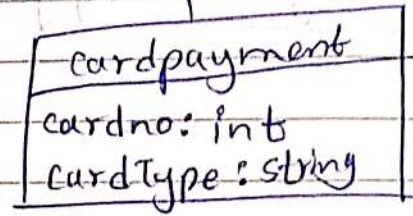 cardpayment
cardno: int
cardType: string